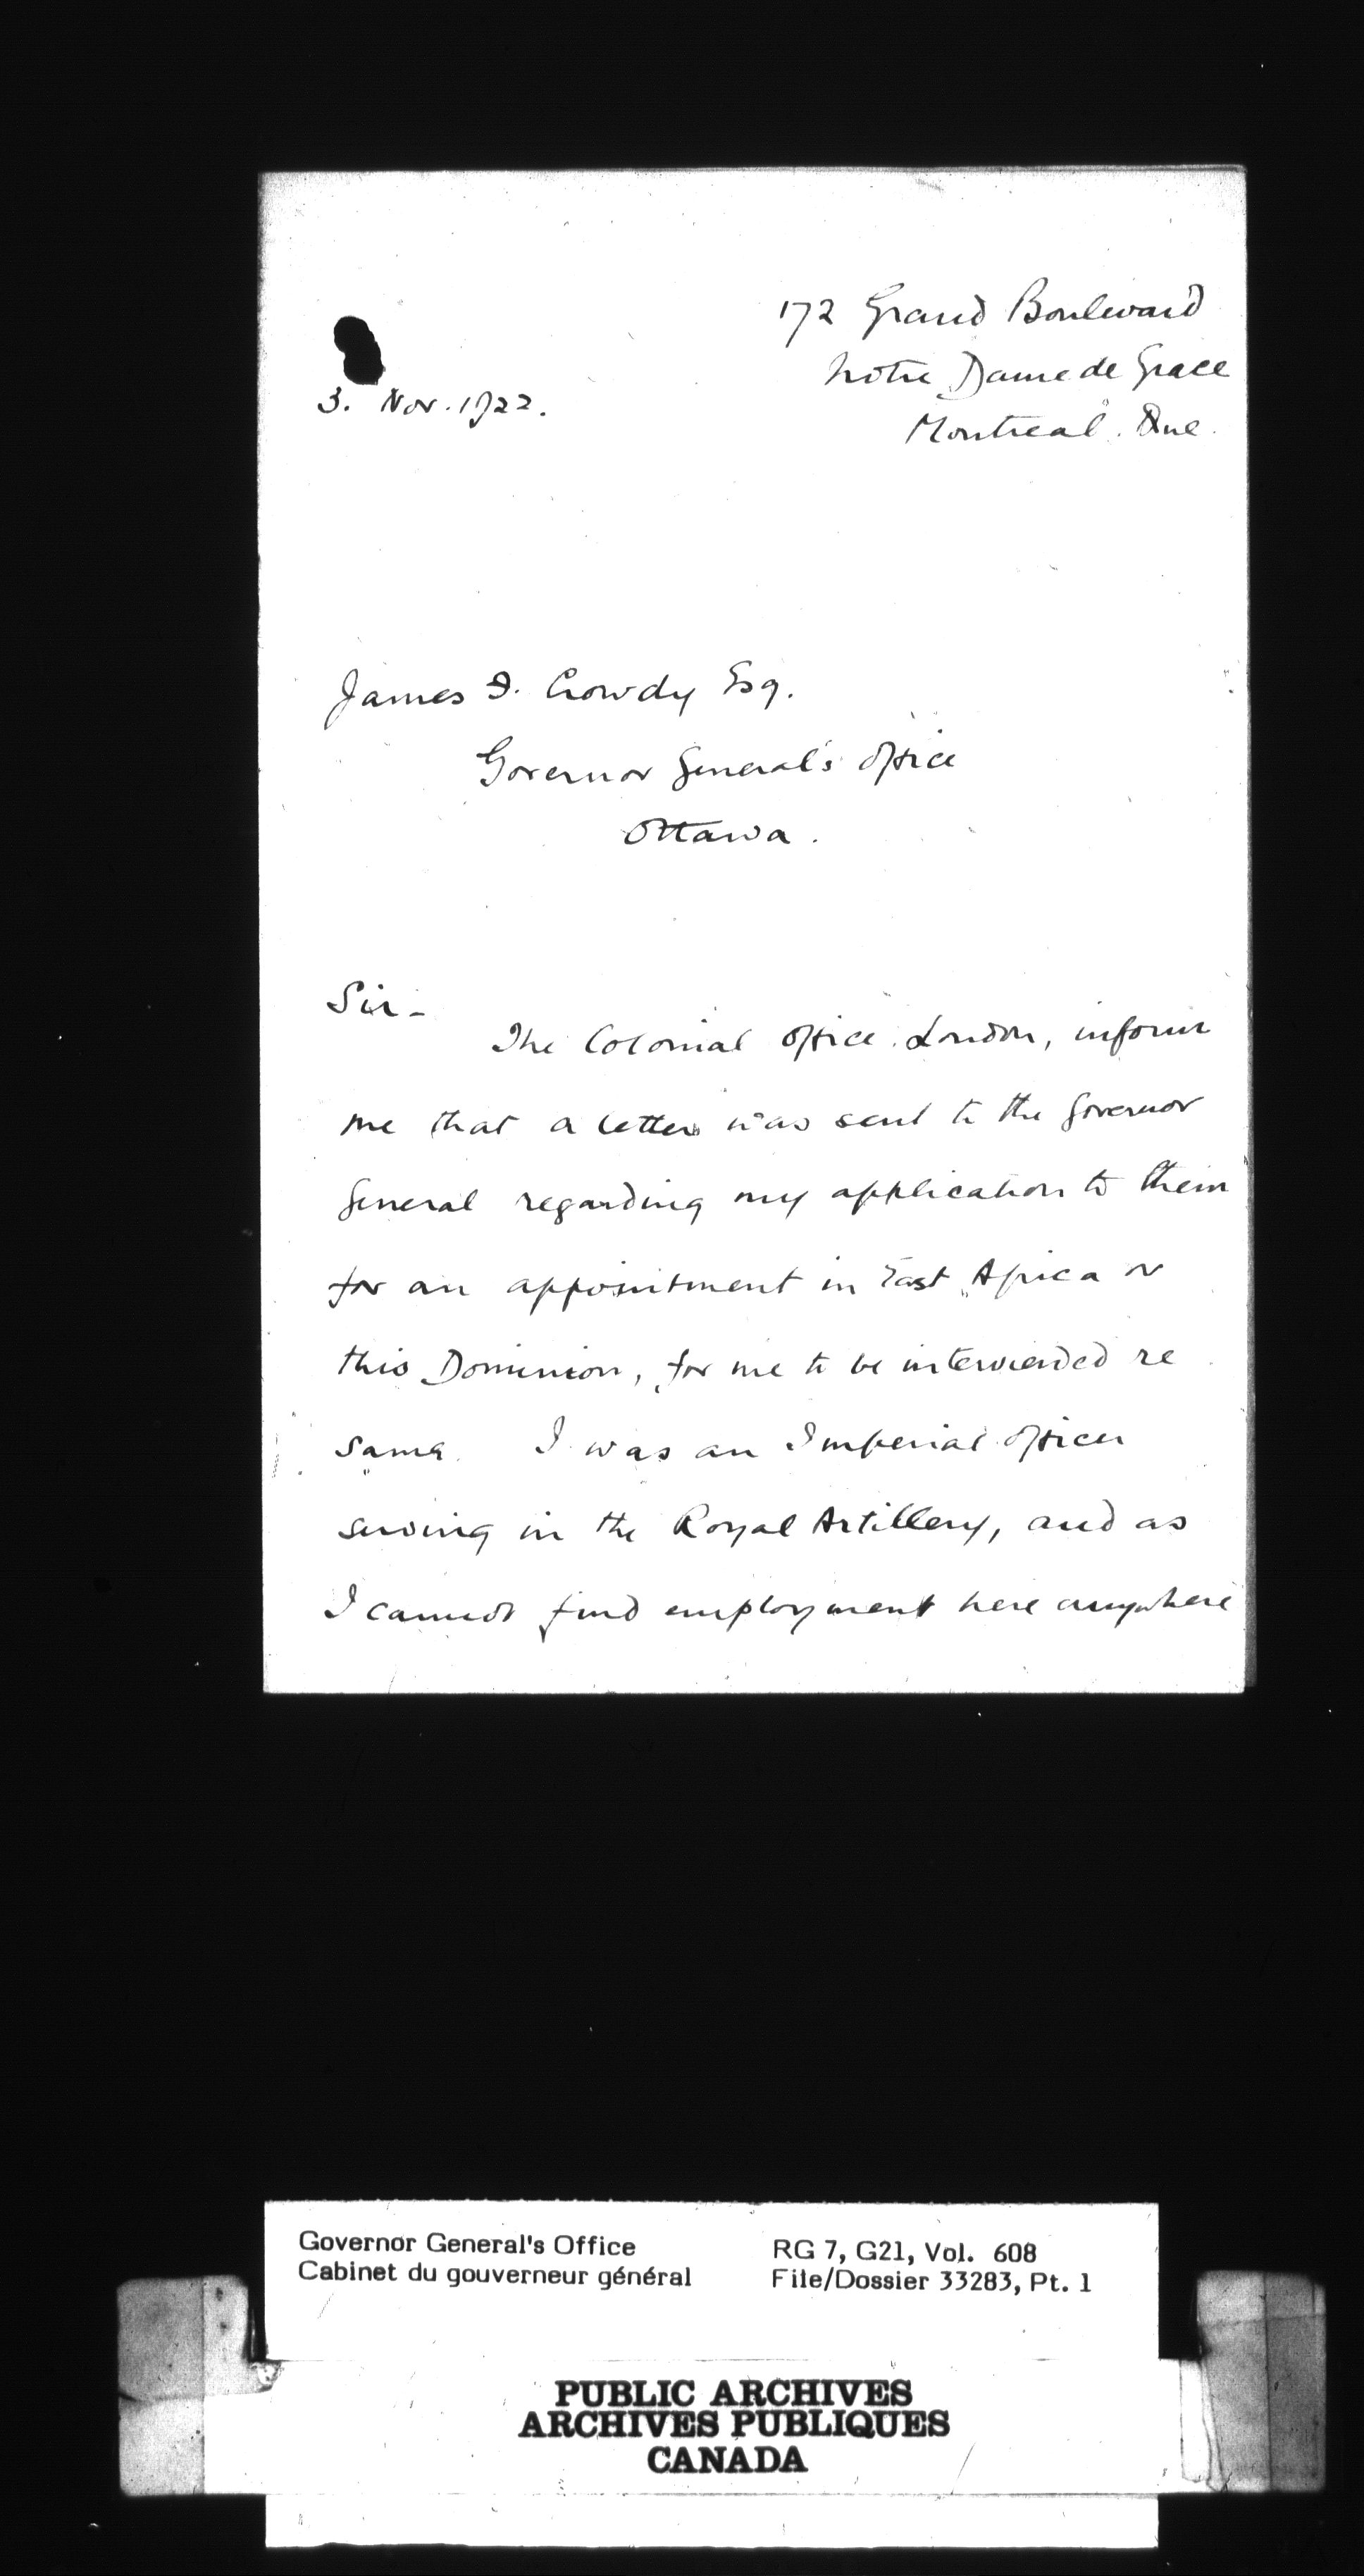 172 Grand Boulevard
Notre Dame de Grace
Montreal. Que.
3. Nov. 1922.
James F. Crowdy Esq.
Governor General's Office
Ottawa.
Sir-
The Colonial Office London, inform
me that a letter was sent to the Governor
General regarding my application to them
for an appointment in East Africa or
this Dominion, for me to be interviewed re
same. I was an Imperial Officer
serving in the Royal Artillery, and as
I cannot find employment here anywhere
Governor General's Office
Cabinet du gouverneur général
RG 7, G21, Vol. 608
File/Dossier 33283, Pt. 1
PUBLIC ARCHIVES
ARCHIVES PUBLIQUES
CANADA